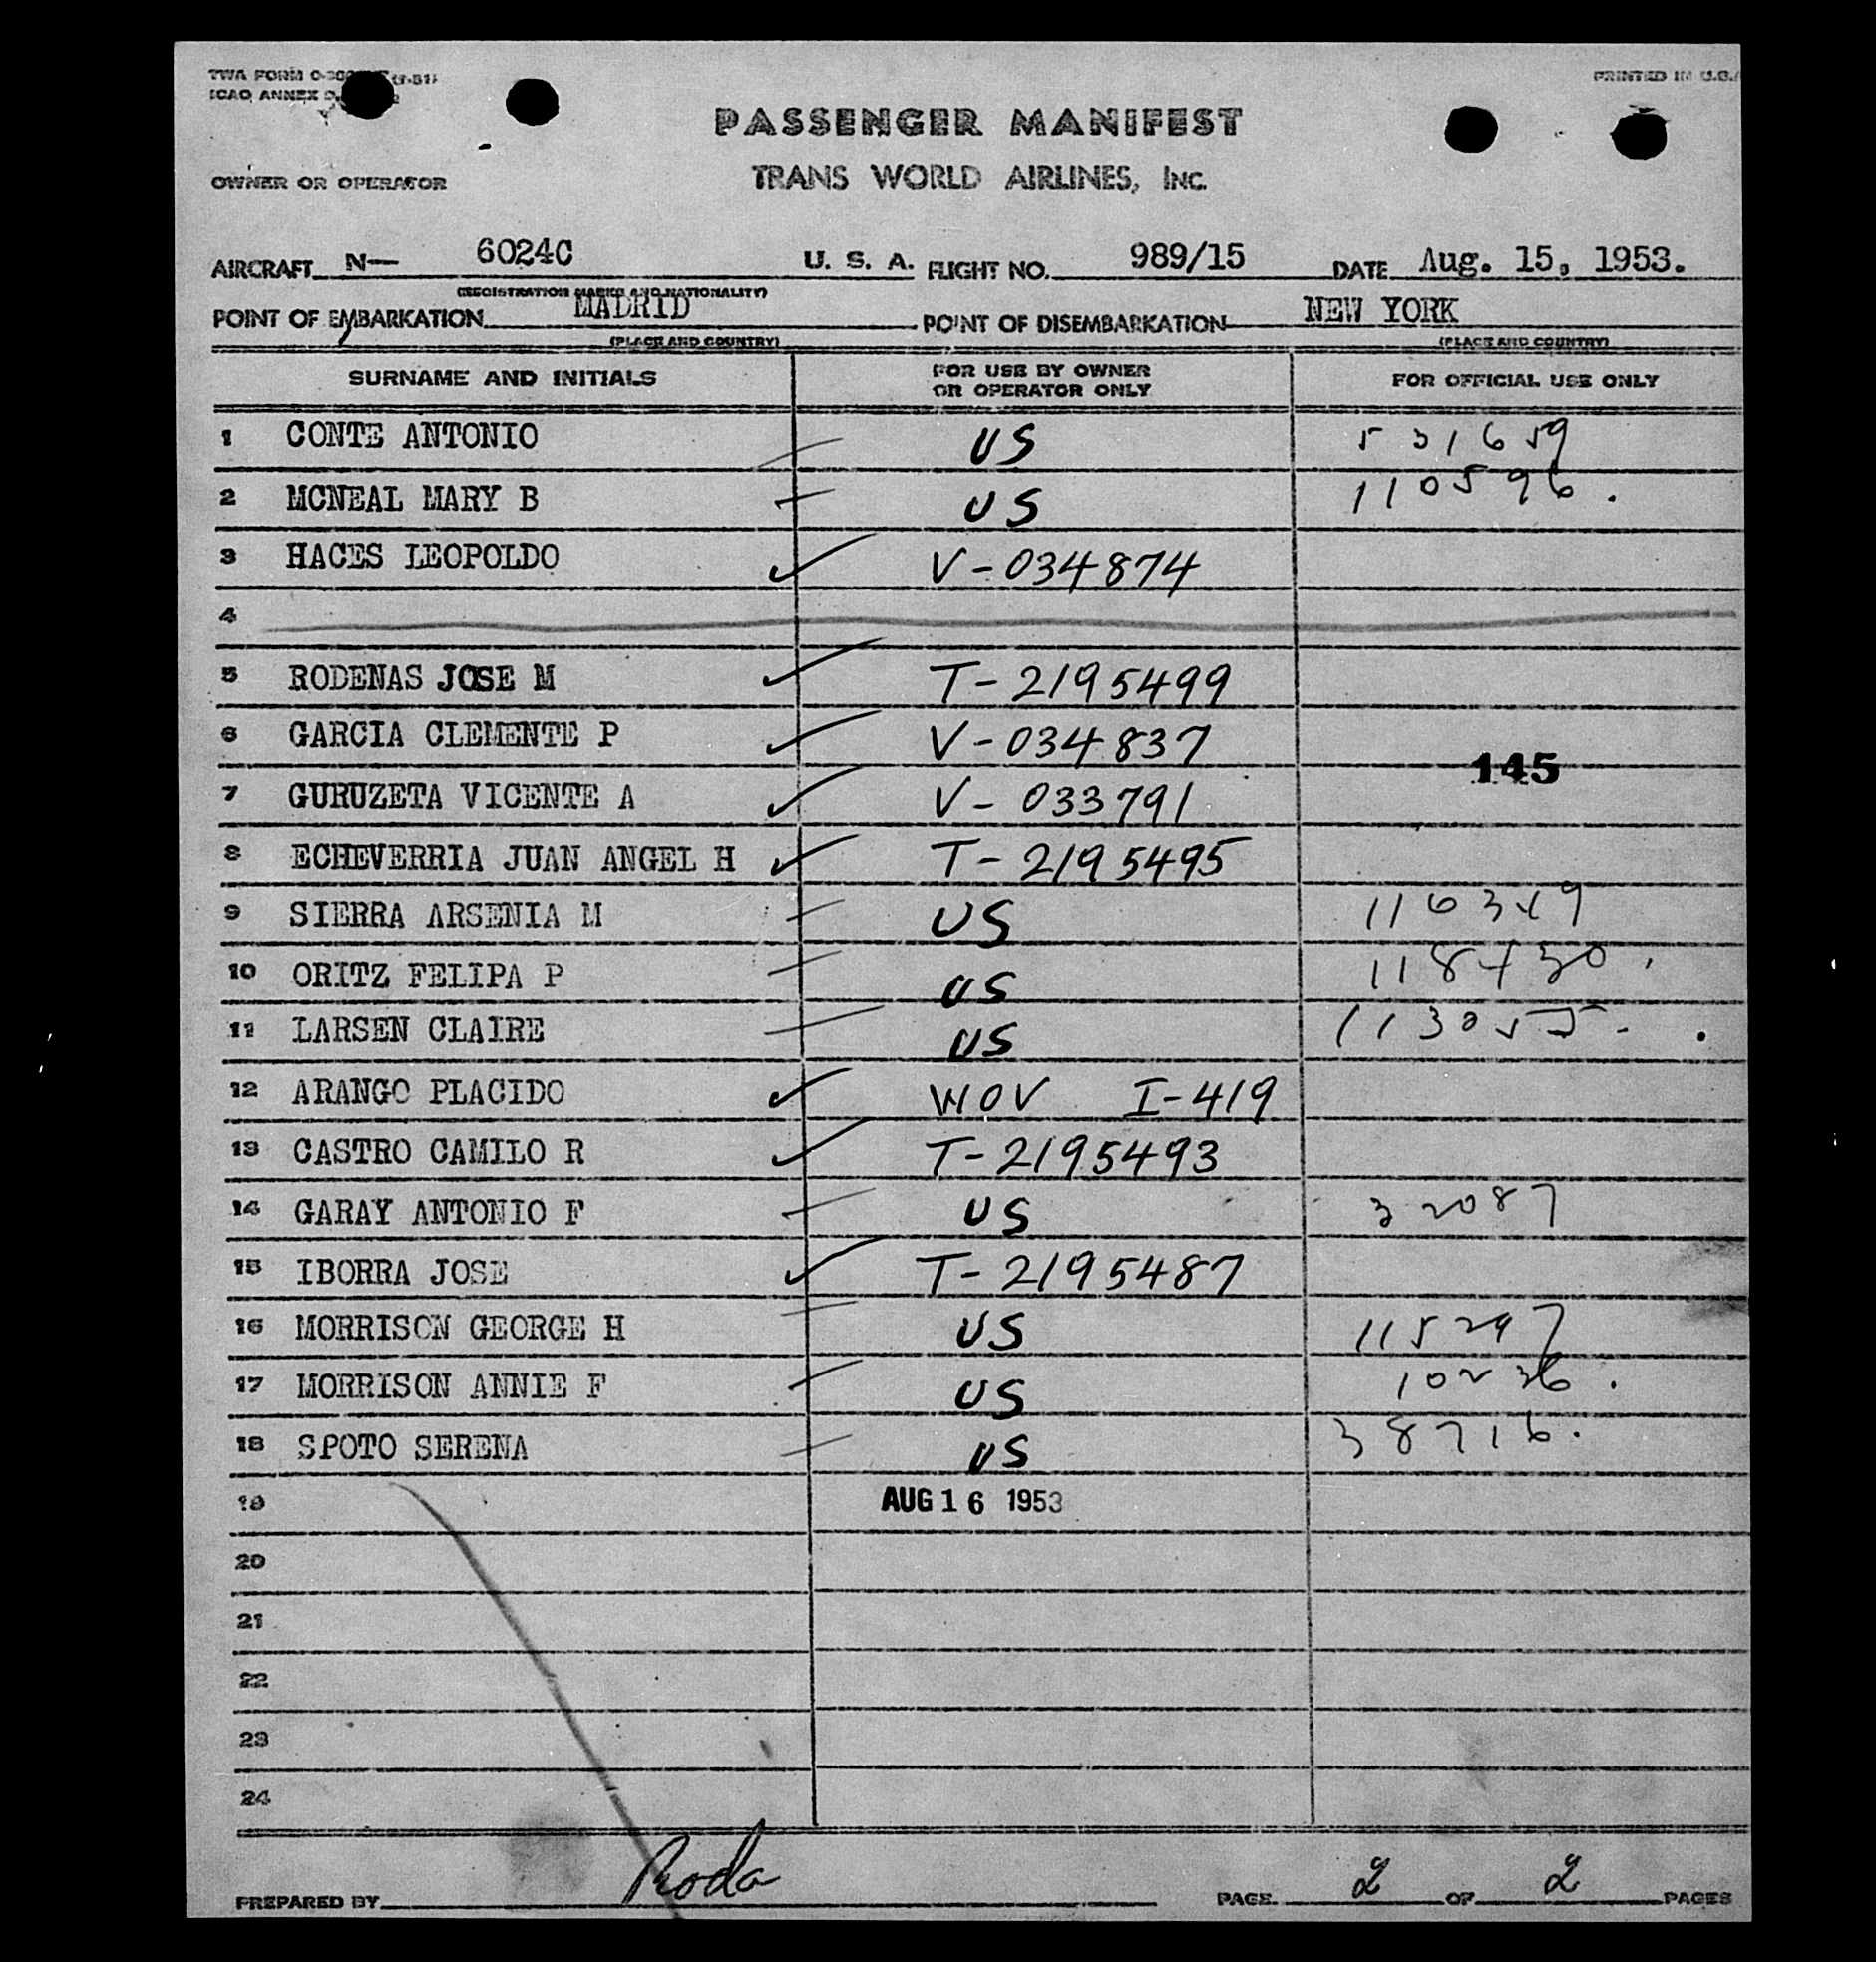 TWA FORM
ICAO ANNEX
PRINTED IN U.S.A
PASSENGER MANIFEST
TRANS WORLD AIRLINES, INC.
OWNER OR OPERATOR
AIRCRAFT N— 6024C U. S. A. FLIGHT NO. 989/15 DATE Aug. 15, 1953.
(REGISTRATION MARKS AND NATIONALITY)
POINT OF EMBARKATION MADRID POINT OF DISEMBARKATION NEW YORK
(PLACE AND COUNTRY) (PLACE AND COUNTRY)
SURNAME AND INITIALS FOR USE BY OWNER OR OPERATOR ONLY FOR OFFICIAL USE ONLY
1 CONTE ANTONIO US 531659
2 MCNEAL MARY B US 110596.
3 HACES LEOPOLDO V-034874
4
5 RODENAS JOSE M T-2195499
6 GARCIA CLEMENTE P V-034837
145
7 GURUZETA VICENTE A V-033791
8 ECHEVERRIA JUAN ANGEL H T-2195495
9 SIERRA ARSENIA M US
10 ORITZ FELIPA P US
11 LARSEN CLAIRE US
12 ARANGO PLACIDO WOV I-419
13 CASTRO CAMILO R T-2195493
14 GARAY ANTONIO F US 32087
15 IBORRA JOSE T-2195487
16 MORRISON GEORGE H US 115297
17 MORRISON ANNIE F US 10236.
18 SPOTO SERENA US 38716.
19 AUG 16 1953
20
21
22
23
24
PREPARED BY Roda PAGE 2 OF 2 PAGES